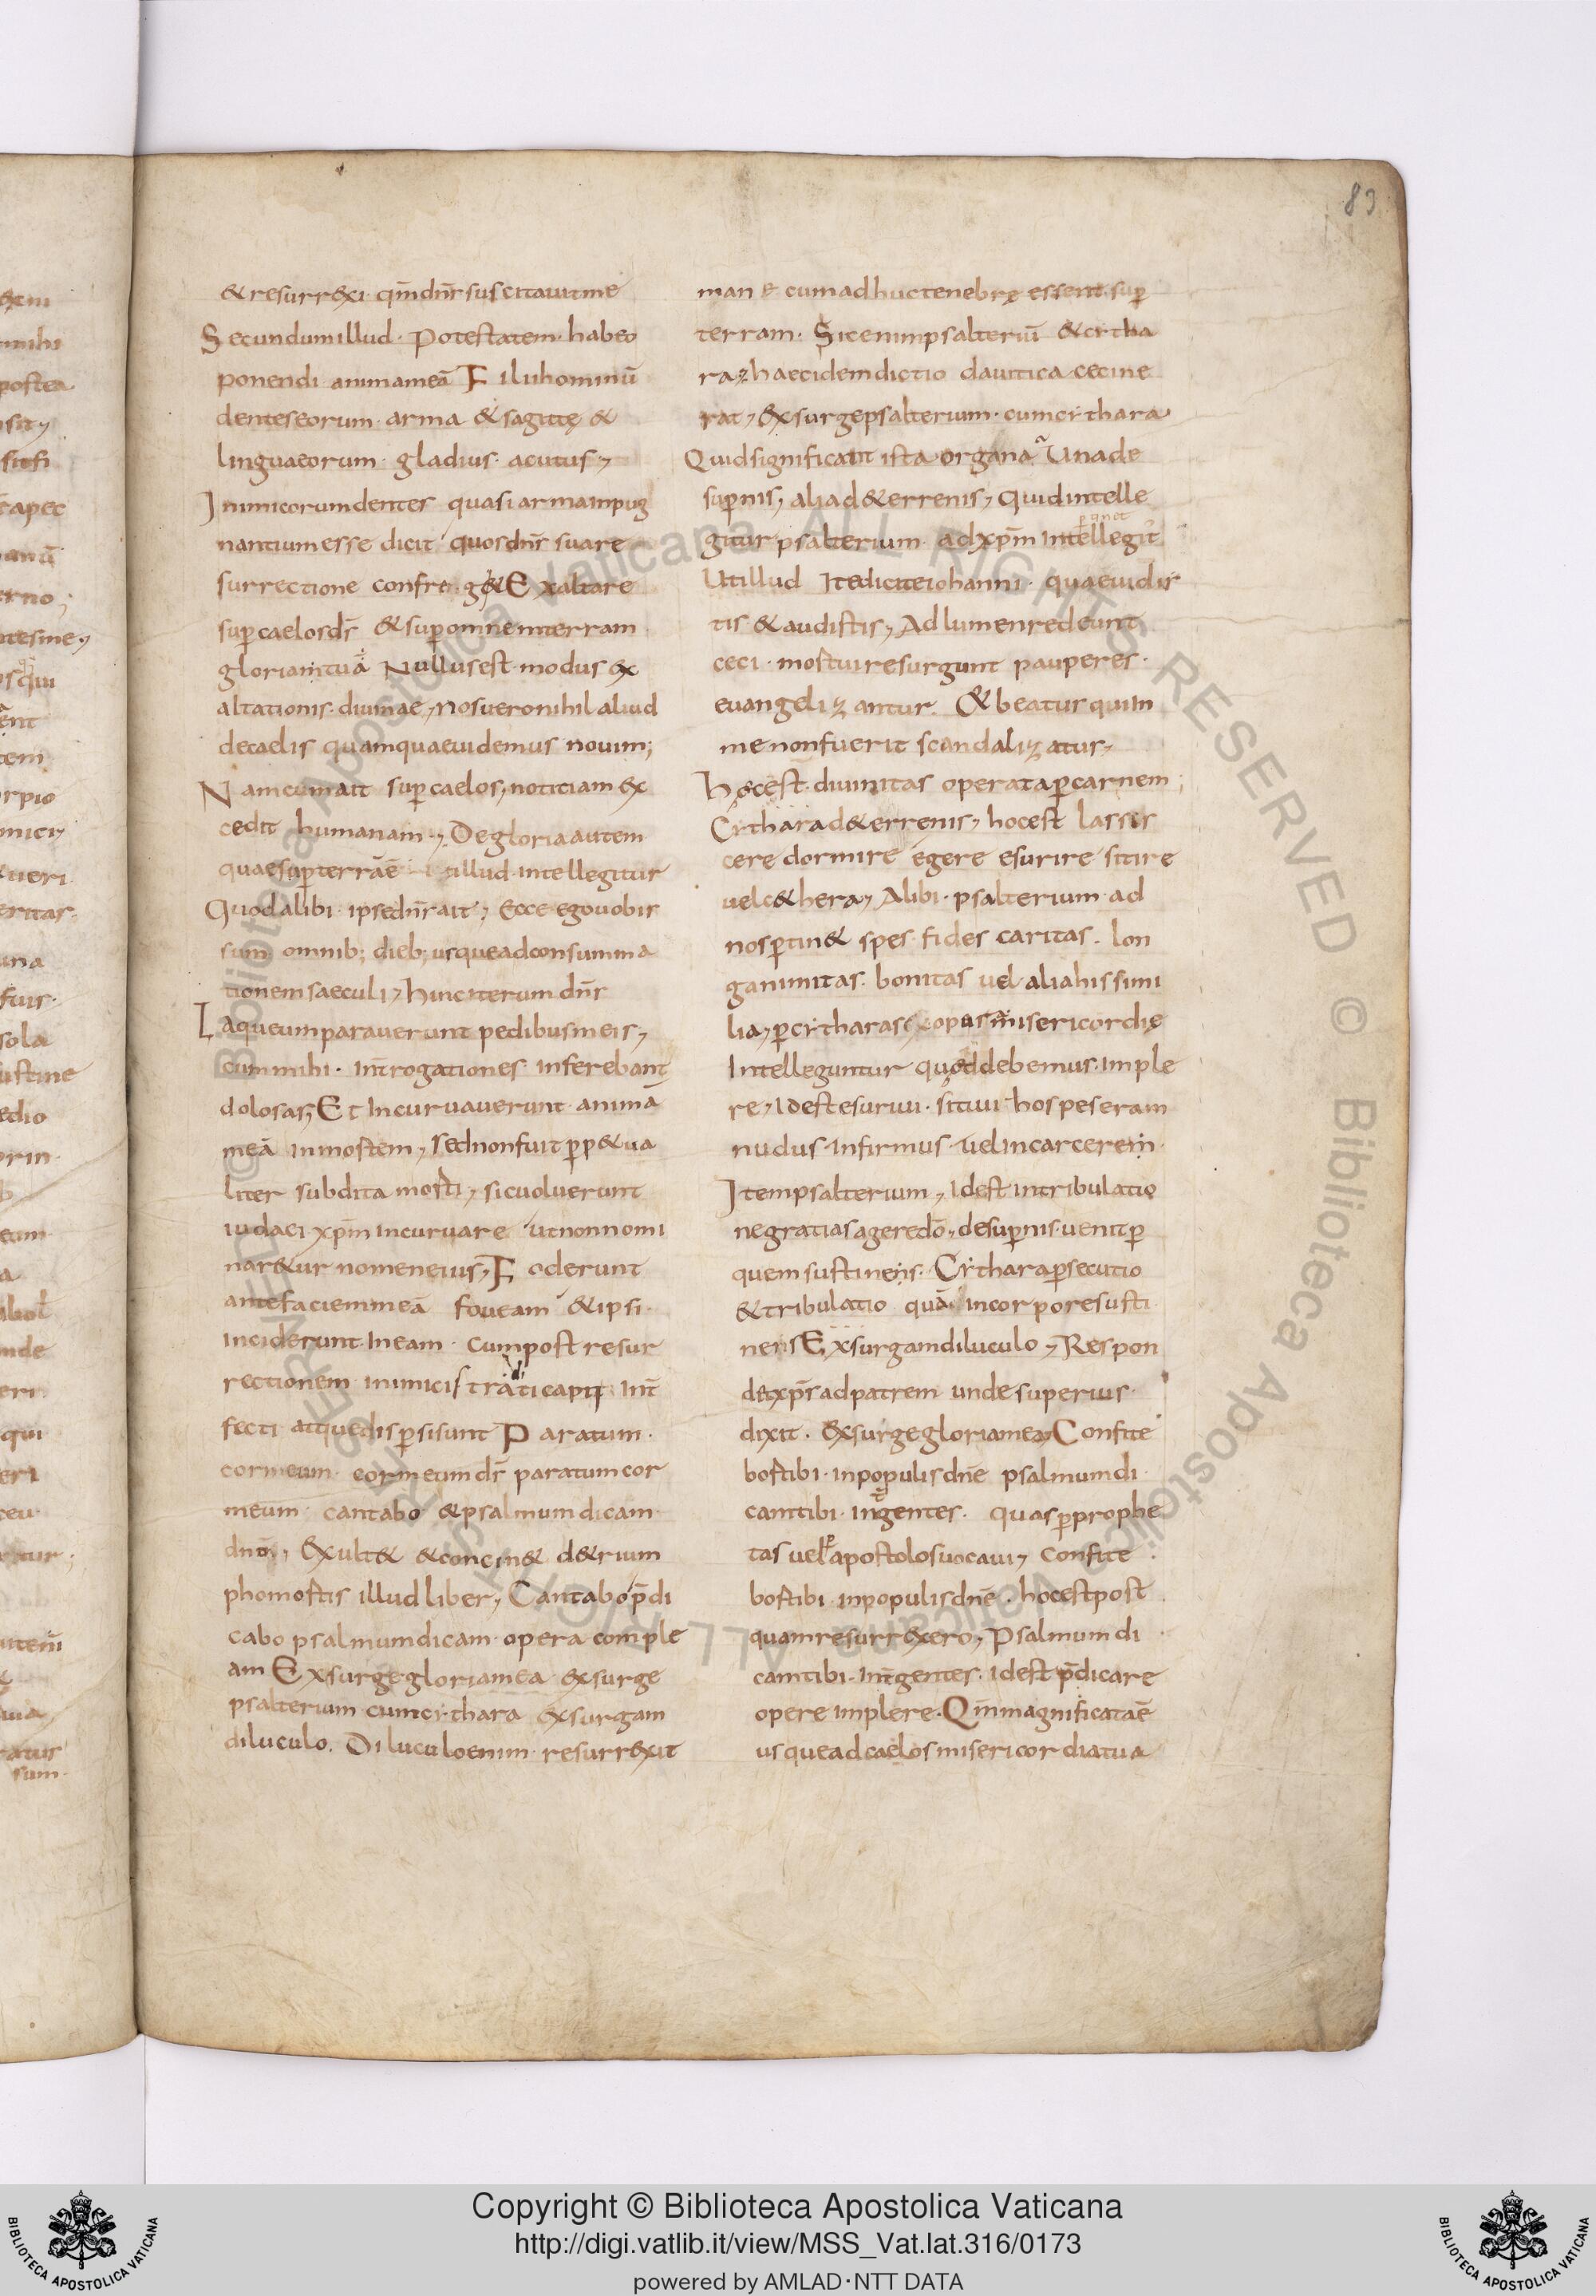 83
& resurrexi · qm̄ dn̄s suscitauit me
Secundum illud · Potestatem · habeo
ponendi animā meā Filii hominū
dentes eorum · arma & sagittę &
lingua eorum · gladius · acutus ,
Inimicorum dentes quasi arma inpug
nantium esse dicit quos dn̄s sua re
surrectione confre · g& Exaltare
sup caelos ds̄ & sup omnem terram
gloriam tuā Nullus est modus ex
altationis · diuinae , nos uero nihil aliud
de caelis quam quae uidemus nouim;
Nam cum ait sup caelos , notitiam ex
cedit humanam , De gloria autem
quae sup terrā ē illud · intellegitur
Quod alibi · ipse dn̄s ait , Ecce ego uobis
sum omnib; dieb; usque ad consumma
tionem saeculi , hinc iterum dn̄s
Laqueum parauerunt pedibus meis ,
cum mihi · int̄rogationes inferebant
dolosas , Et incuruauerunt · animā
meā in mortem , sed non fuit pp&ua
liter subdita morti , sic uoluerunt
iudaei xpm̄ incuruare ut non nomi
nar&ur nomen eius , Foderunt
ante faciem meā foueam & ipsi ·
inciderunt in eam · cum post resur
rectionem inimicis trāti capti int̄
fecti atque dispersi sunt Paratum ·
cor meum · cor meum ds̄ paratum cor
meum · cantabo & psalmum dicam
dn̄o , Exult& & concin& d&rium
pho mortis illud liber , Cantabo p̄di
cabo psalmum dicam · opera comple
am Exsurge gloria mea exsurge
psalterium cum cythara exsurgam
diluculo . Diluculo enim · resurrexit
mane cum adhuc tenebrę essent sup
terram · Sic enim psalteriū & cytha
ra , haec idem dictio dauitica cecine
rat , Exsurge psalterium · cum cythara
Quid significant ista organa Una de
supnis , alia de terrenis , Quid intelle
gitur psalterium · ad xpm̄ Intellegit̄
Ut illud Ite dicite iohanni · quae uidis
tis & audistis , Ad lumen redeunt
ceci · mortui resurgunt pauperes ·
euangelizantur . & beatus qui in
me non fuerit scandalizatus ,
hoc est · diuinitas operata p carnem ;
Cythara de terrenis , hoc est lasses
cere dormire egere esurire sitire
uel c&hera , Alibi · psalterium · ad
nos ptin& spes · fides caritas . lon
ganimitas . bonitas uel alia his simi
lia , p cytharas opus misericordię
Intelleguntur quod debemus · imple
re , Id est esuriui · sitiui hospes eram
nudus · infirmus · uel in carcerem ·
Item psalterium , Id est in tribulatio
ne gratias agere dō , de supnis · uenit p
quem sustinens . Cythara psecutio
& tribulatio quā incorpore susti
nens Exsurgam diluculo , Respon
det xps̄ ad patrem unde superius ·
dixit . Exsurge gloria mea , Confite
bor tibi · in populis dn̄e psalmum di
cam tibi · in gentes . quas p prophe
tas uel apostolos uocaui , Confite
bor tibi · in populis dn̄e · hoc est post
quam resurrexero , Psalmum di
cam tibi · in gentes . Id est p̄dicare
opere implere · Qm̄ magnificata ē
usque ad caelos misericordia tua
Copyright © Biblioteca Apostolica Vaticana
http://digi.vatlib.it/view/MSS_Vat.lat.316/0173
powered by AMLAD·NTT DATA